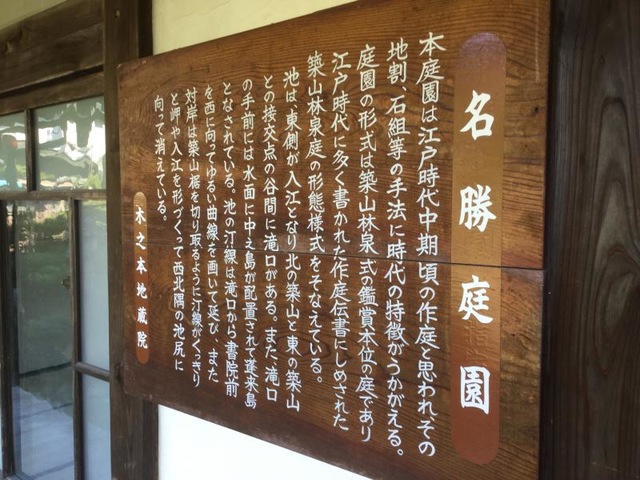 名勝庭園
本庭園は江戸時代中期頃の作庭と思われその
地割、石組等の手法に時代の特徴がうかがえる。
庭園の形式は築山林泉式の鑑賞本位の庭であり
江戸時代に多く書かれた作庭伝書にしめされた
築山林泉庭の形態様式をそなえている。
池は、東側が入江となり北の築山と東の築山
との接交点の谷間に滝口がある。また、滝口
の手前には水面に中え島が配置されて蓬来島
となされている。池の汀線は滝口から書院前
を西に向ってゆるい曲線を画いて延び、また
対岸は築山裾を切り取るように汀線がくっきり
と岬や入江を形づくって西北隅の池尻に
向って消えている。
木之本地蔵院